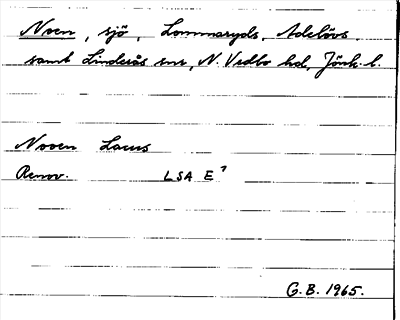 Noen, sjö, Lommaryds, Adelövs
samt Linderås snr, N. Vedbo hd, Jönk. l.
Nooen Lacus
Renov. LSA E⁷
G.B. 1965.